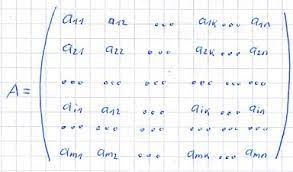 a₁₁ a₁₂ ... a₁ₖ ... a₁ₙ
a₂₁ a₂₂ ... a₂ₖ ... a₂ₙ
... ... ... ... ... ...
A = aᵢ₁ a₁₂ ... aᵢₖ ... aᵢₙ
... ... ... ... ... ...
aₘ₁ aₘ₂ ... aₘₖ ... aₘₙ